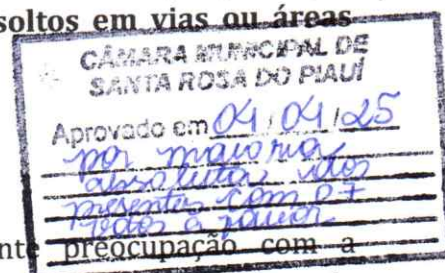 soltos em vias ou áreas
CÂMARA MUNICIPAL DE
SANTA ROSA DO PIAUÍ
Aprovado em 04/04/25
por maioria
absoluta dos
presentes com 07
votos a favor
preocupação com a